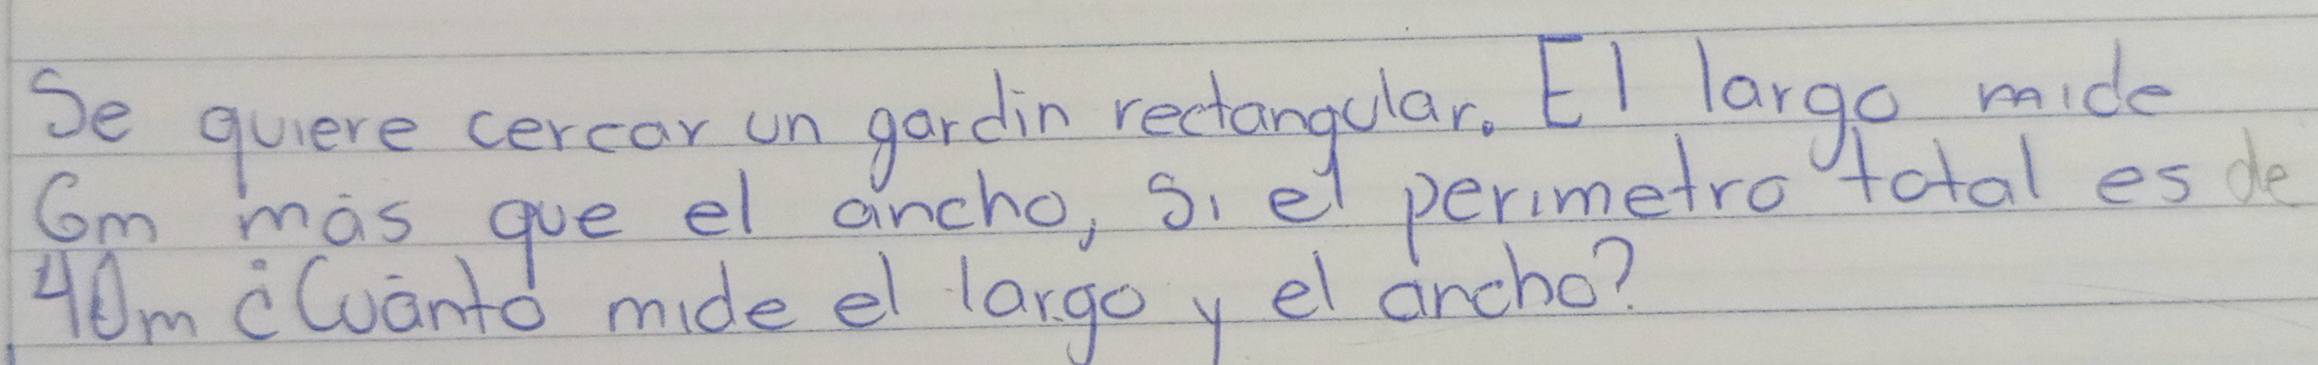 Se quiere cercar un gardin rectangular. El largo mide
6m más que el ancho, Si el perimetro total es de
40m ¿Cuánto mide el largo y el ancho?